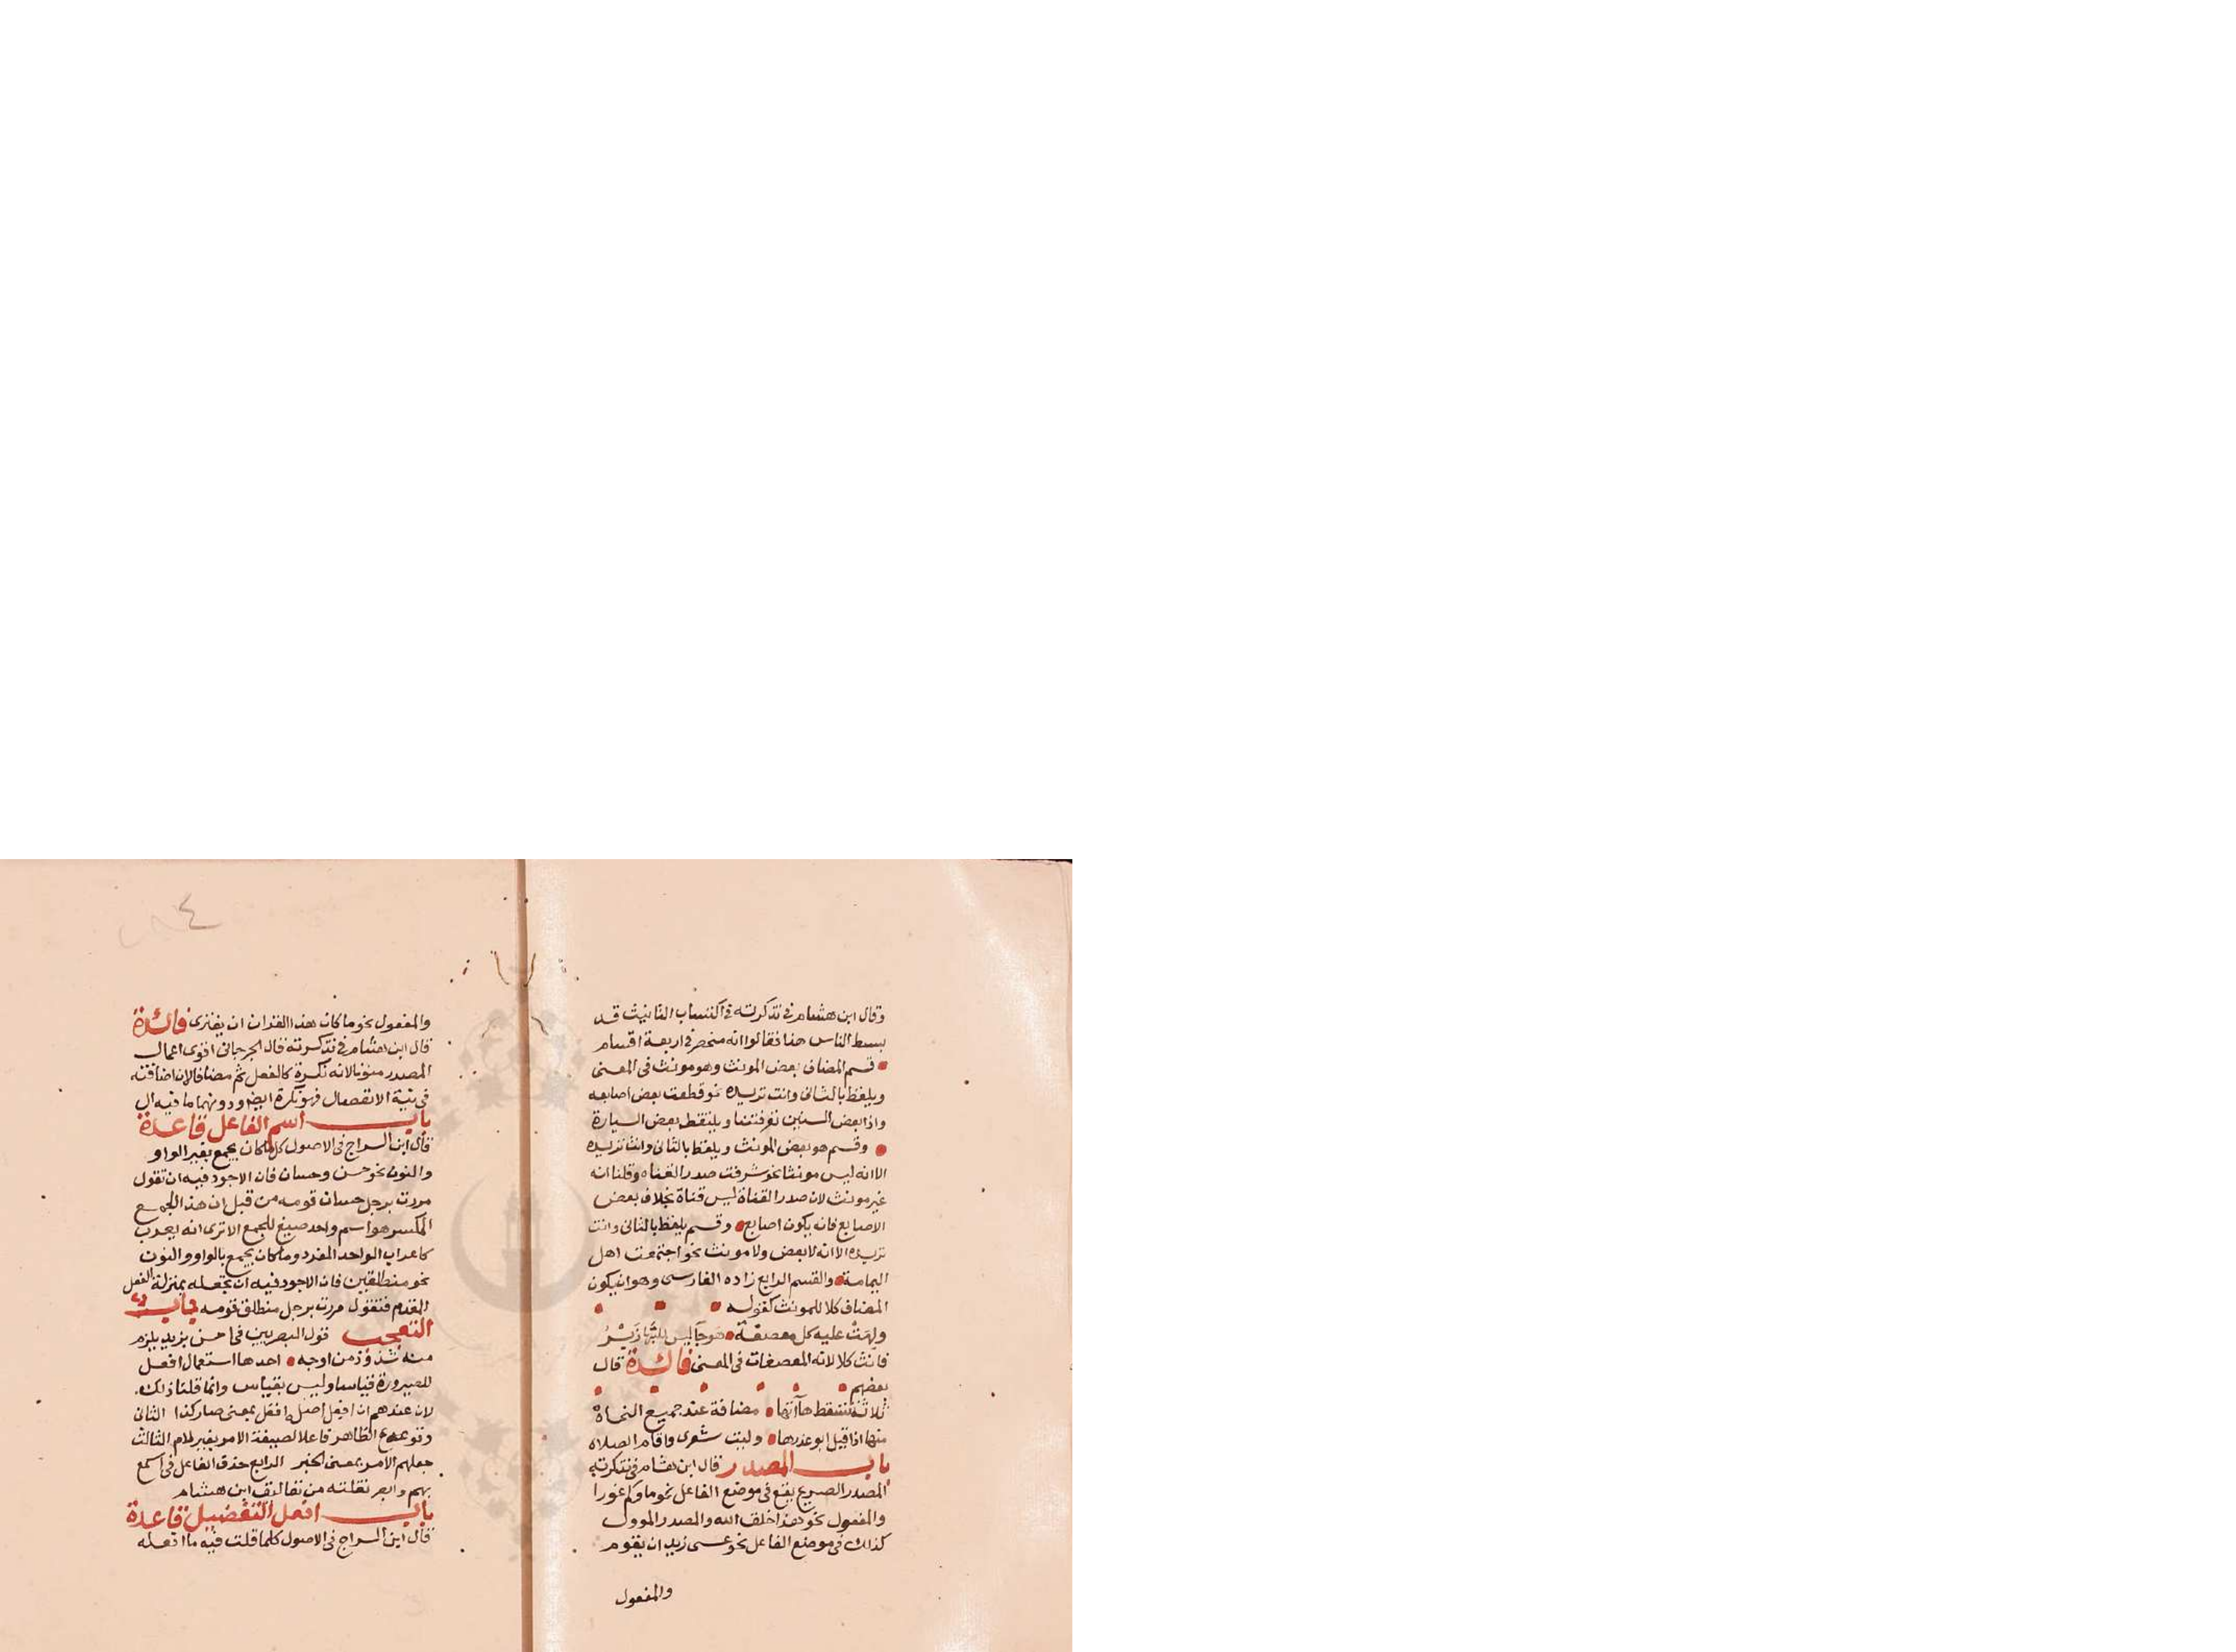 وقال ابن هشام في تذكرته في اكتساب التانيث قد
بسط الناس هذا فقالوا انه منحصر في اربعة اقسام
قسم المضاف بعض المونث وهو مونث في المعنى
ويلفظ بالثاني وانت تريده نحو قطعت بعض اصابعه
واذا بعض السنين تعرفتنا ويلتقط بعض السيارة
وقسم هو بعض المونث ويلفظ بالثاني وانت تريده
الا انه ليس مونثا نحو شرقت صدر القناه وقلنا انه
غير مونث لان صدر القناة ليس قناة بخلاف بعض
الاصابع فانه يكون اصابع وقسم يلفظ بالثاني وانت
تريده الا انه لا بعض ولا مونث نحو اجتمعت اهل
اليمامة والقسم الرابع زاده الفارسي وهو ان يكون
المضاف كلا للمونث كقوله
ولهت عليه كل معصفة هوجا ليس للبها زبر
فانث كلا لانه المعصفات في المعنى فائدة قال
بعضهم
ثلاثة تسقط هاآتها مضافة عند جميع النحاة
منها اذا قيل ابو عذرها وليت شعرى واقام الصلاه
باب المصدر قال ابن هشام في تذكرته
المصدر الصريح يقع في موضع الفاعل نحو ماوكم غورا
والمفعول نحو هذا خلق الله والمصدر الموول
كذلك في موضع الفاعل نحو عسى زيد ان يقوم
والمفعول
والمفعول نحو ما كان هذا القران ان يفترى فائدة
قال ابن هشام في تذكرته قال الجرجاني اقوى اعمال
المصدر منونا لانه نكرة كالفعل ثم مضافا لان اضافته
في نية الانفصال فهو نكرة ايضا ودونهما ما فيه ال
باب اسم الفاعل قاعدة
قال ابن السراج في الاصول كل ما كان يجمع بغير الواو
والنون نحو حسن وحسان فان الاجود فيه ان تقول
مررت برجل حسان قومه من قبل ان هذا الجمع
المكسر هو اسم واحد صيغ للجمع الا ترى انه يعرب
كاعراب الواحد المفرد وما كان يجمع بالواو والنون
نحو منطلقين فان الاجود فيه ان تجعله بمنزلة الفعل
المقدم فتقول مررت برجل منطلق قومه باب
التعجب قول البصريين في احسن بزيد يلزم
منه شذوذ من اوجه احدها استعمال افعل
للصيرورة قياسا وليس بقياس وانما قلنا ذلك
لان عندهم ان افعل اصله افعل بمعنى صار كذا الثاني
وقوع الظاهر فاعلا لصيغة الامر بغير لام الثالث
جعلهم الامر بمعنى الخبر الرابع حذف الفاعل في اسمع
بهم وابصر نقلته من تعاليق ابن هشام
باب افعل التفضيل قاعدة
قال ابن السراج في الاصول كلما قلت فيه ما افعله